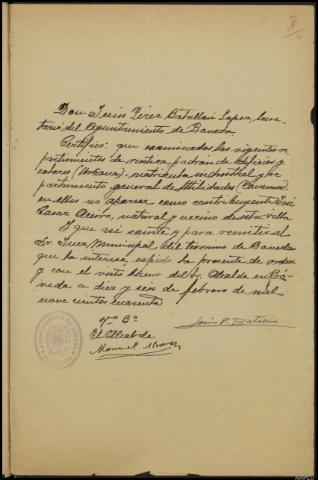 8
Don Jesús Pérez Batallón Lopez, Secre-
tario del Ayuntamiento de Baneda.
Certifico: que examinados los vigentes re-
partimientos de rustica, padrón de edificios y
solares (Urbana), matricula industrial y re-
partimiento general de Utilidades (Consumos)
en ellos no aparece como contribuyente José
natural y vecino de esta villa
Y que asi conste y para remitir al
Sr. Juez Municipal del termino de Baneda
que lo interesa, expido la presente de orden
y con el visto bueno del Sr. Alcalde en Bá-
neda a diez y seis de febrero de mil
nove cientos cuarenta
Vº Bº
El Alcalde
Manuel Alvarez
Jesús P. Batallón